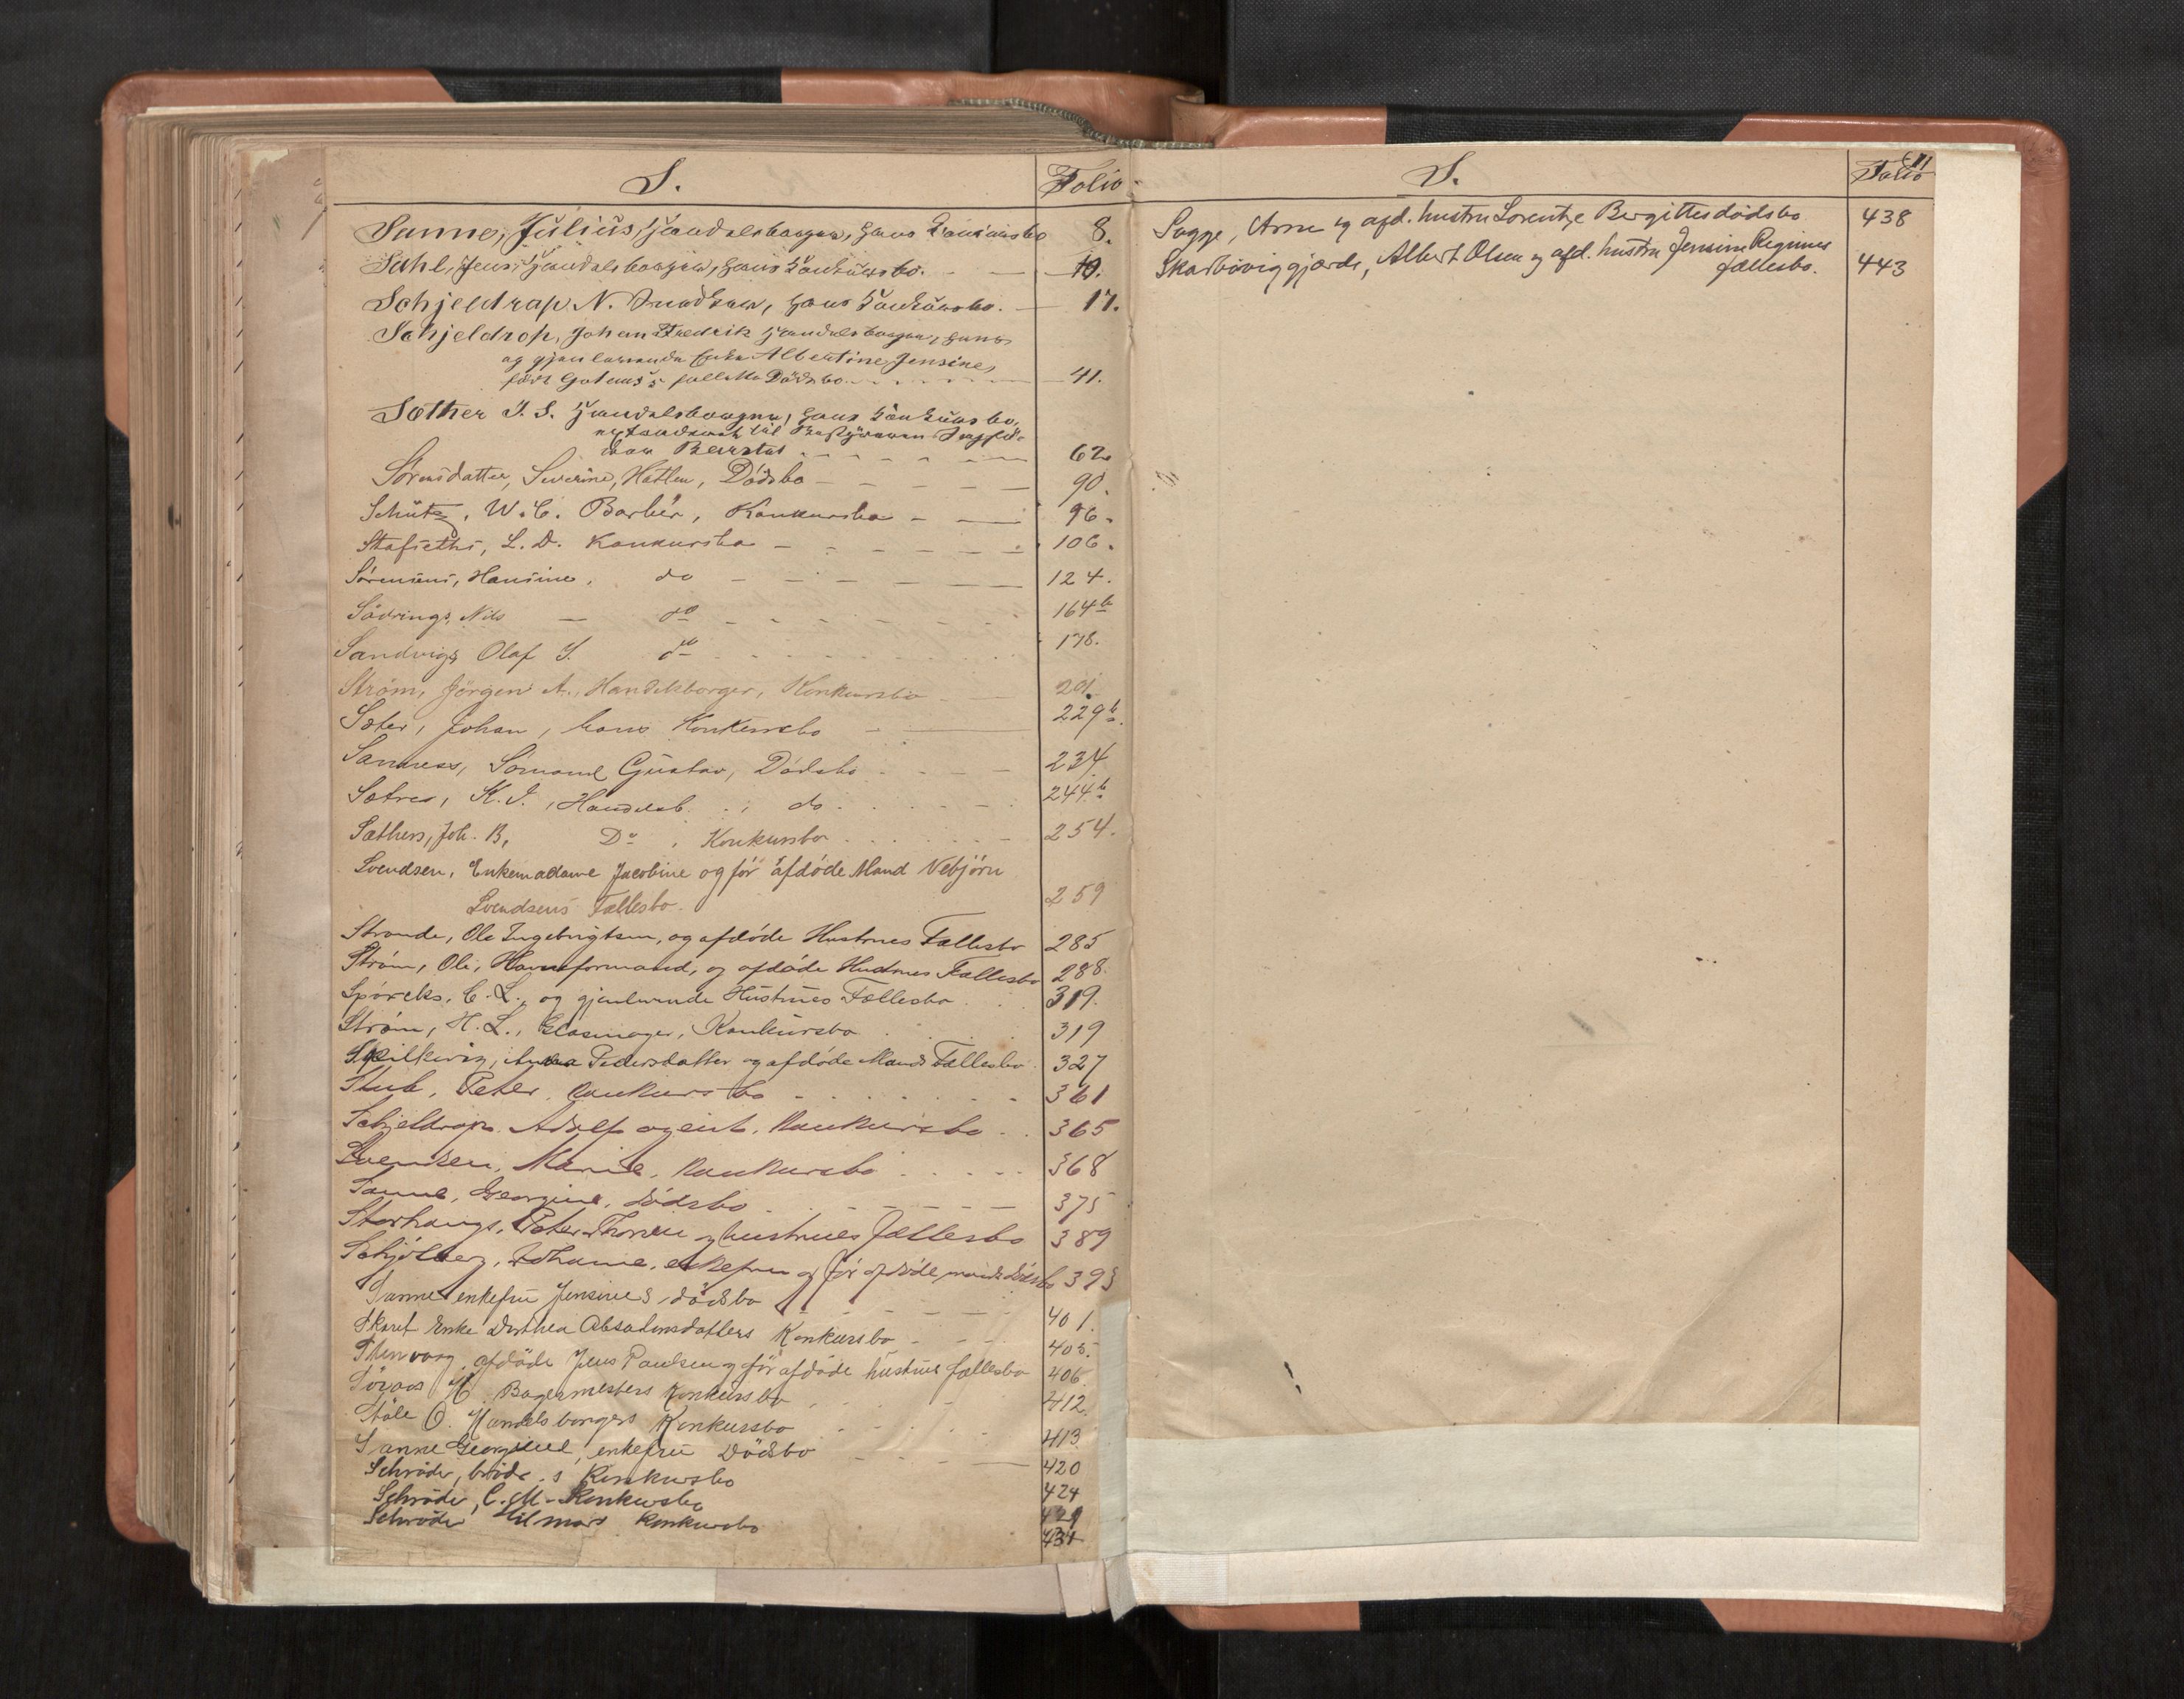 S.
Folio
Sanne, Julius, Handelsborger, hans Konkursbo 8.
Sahl, Jens, Handelsborger, hans Konkursbo. 10.
Schjeldrap N. Snedker, hans Konkursbo. 17.
Schjeldrop, Johan Fredrik Handelsborger, hans
og gjenlevende Enke Albertine Jensine,
født fælleds Dödsbo 41.
Sæther J. S. Handelsborger, hans Konkursbo,
62.
Sörensdatter, Severine, Hatlen, Dödsbo 90.
Schütz, W. C. Barbér, Konkursbo 96.
Stafseths, L. D. Konkursbo 106.
Sörensens, Hansine, do 124.
Södrings, Nils do 164 b
Sandvigs Olaf J. do 178.
Ström, Jörgen A., Handelsborger, Konkursbo 201.
Sæter, Johan, hans Konkursbo 229 b.
Sanness, Sömand Gustav, Dödsbo 234
Sætres, K. J., Handelsb. do 244 b
Sæthers, Joh. B, Do, Konkursbo 254.
Svendsen, Enkemadame Jacobine og för afdöde Mand Vebjörn
Svendsens Fællesbo. 259
Strande, Ole Ingebrigtsen, og afdöde Hustrues Fællesbo 285
Ström, Ole, Havneformand, og afdöde Hustrues Fællesbo 288.
Spörcks, C. L., og gjenlevende Hustrues Fællesbo 319.
Ström, H. L., Glasmager, Konkursbo 319
Spilkevig, Pedersdatter og afdöde Mands Fællesbo 327
Stub, Peter, Konkursbo 361
Schjeldrop, Adolf agent, Konkursbo 365
Svendsen, Marie, Konkursbo 368
Sanne, Georgine, Dödsbo 375
Storhaugs, Peter Thorsen og hustrues Fællesbo 389
Schjölberg, Johanne, enkefru og för afdöde mands Dödsbo 393
Sanne enkefru Jensines dödsbo 401.
Skaret Enke Dorthea Absalonsdatters Konkursbo 405.
Stenvaag afdöde Jens Paulsen og för afdöde hustrues fællesbo 406
Söraas H. Bagermesters Konkursbo 412
Ståle O. Handelsborgers Konkursbo 413
Sanne Georgine, enkefru Dödsbo 420
Schröder, brödr.s Konkursbo 424
Schröder, C. M. Konkursbo 429
Schröder Hilmars Konkursbo 431
S.
Folio
Sagge, Arne og afd. hustru Lorentze Bergittes dödsbo 438
Skarbövig gjærde, Albert Olsen og afd. hustru Jensine Regines
fællesbo. 443